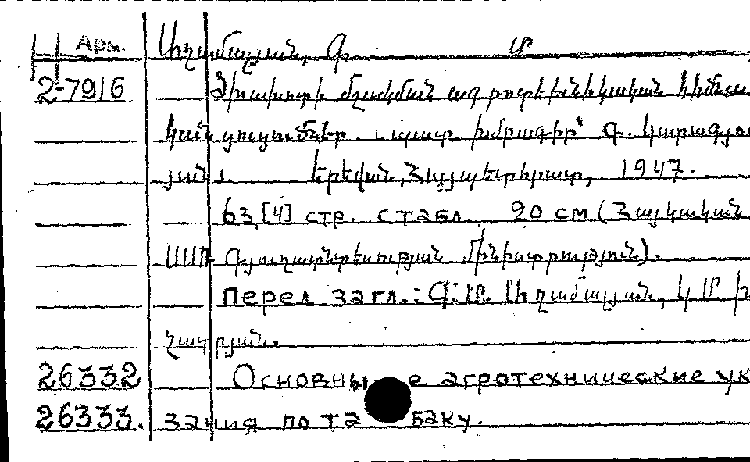 Арм. Աղամալյան, Գ. Մ
2-7916 Ծխախոտի մշակման ագրոտեխնիկական հիմնա
կան ցուցումներ. պատ. խմբագիր՝ Գ.
յան. Երևան, Հայպետհրատ, 1947.
63,[4] стр. с табл. 20 см (Հայկական
ՍՍՌ Գյուղատնտեսության Մինիստրություն).
Перед загл.: Գ. Մ. Աղամալյան, Կ. Մ.
26332 Основные агротехнические ука
26333. зания по табаку.